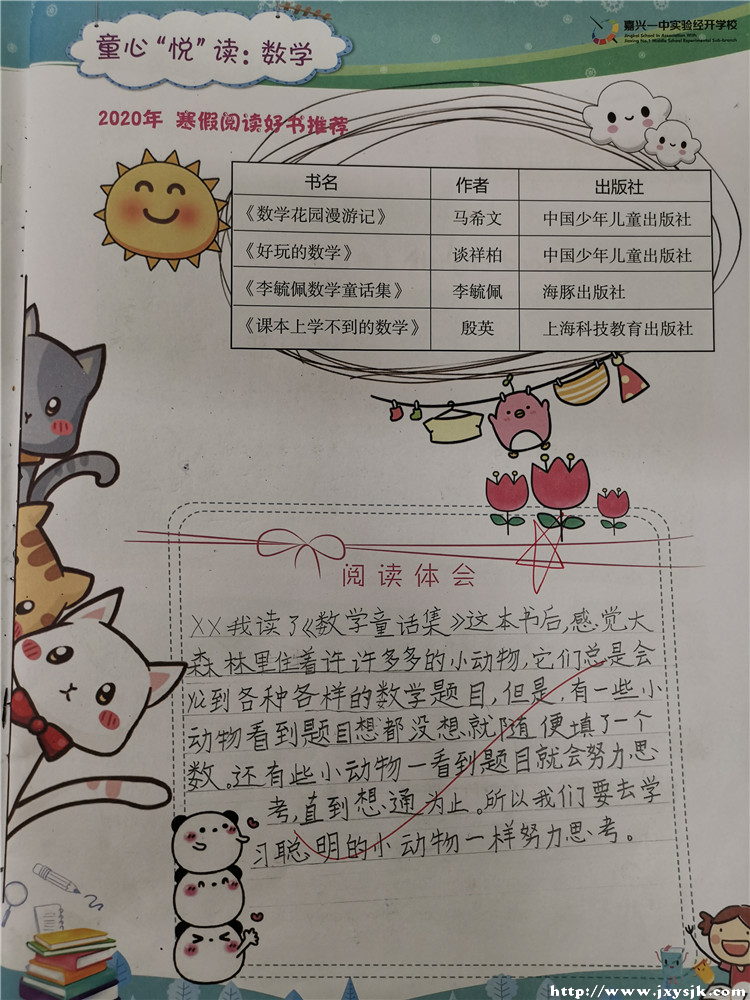 童心“悦”读：数学
嘉兴一中实验经开学校
2020年 寒假阅读好书推荐
书名 作者 出版社
《数学花园漫游记》 马希文 中国少年儿童出版社
《好玩的数学》 谈祥柏 中国少年儿童出版社
《李毓佩数学童话集》 李毓佩 海豚出版社
《课本上学不到的数学》 殷英 上海科技教育出版社
阅读体会
XX我读了《数学童话集》这本书后,感觉大
森林里住着许许多多的小动物,它们总是会
到各种各样的数学题目,但是,有一些小
动物看到题目想都没想就随便填了一个
数。还有些小动物一看到题目就会努力思
考,直到想通为止。所以我们要去学
习聪明的小动物一样努力思考。
http://www.jxysjk.com